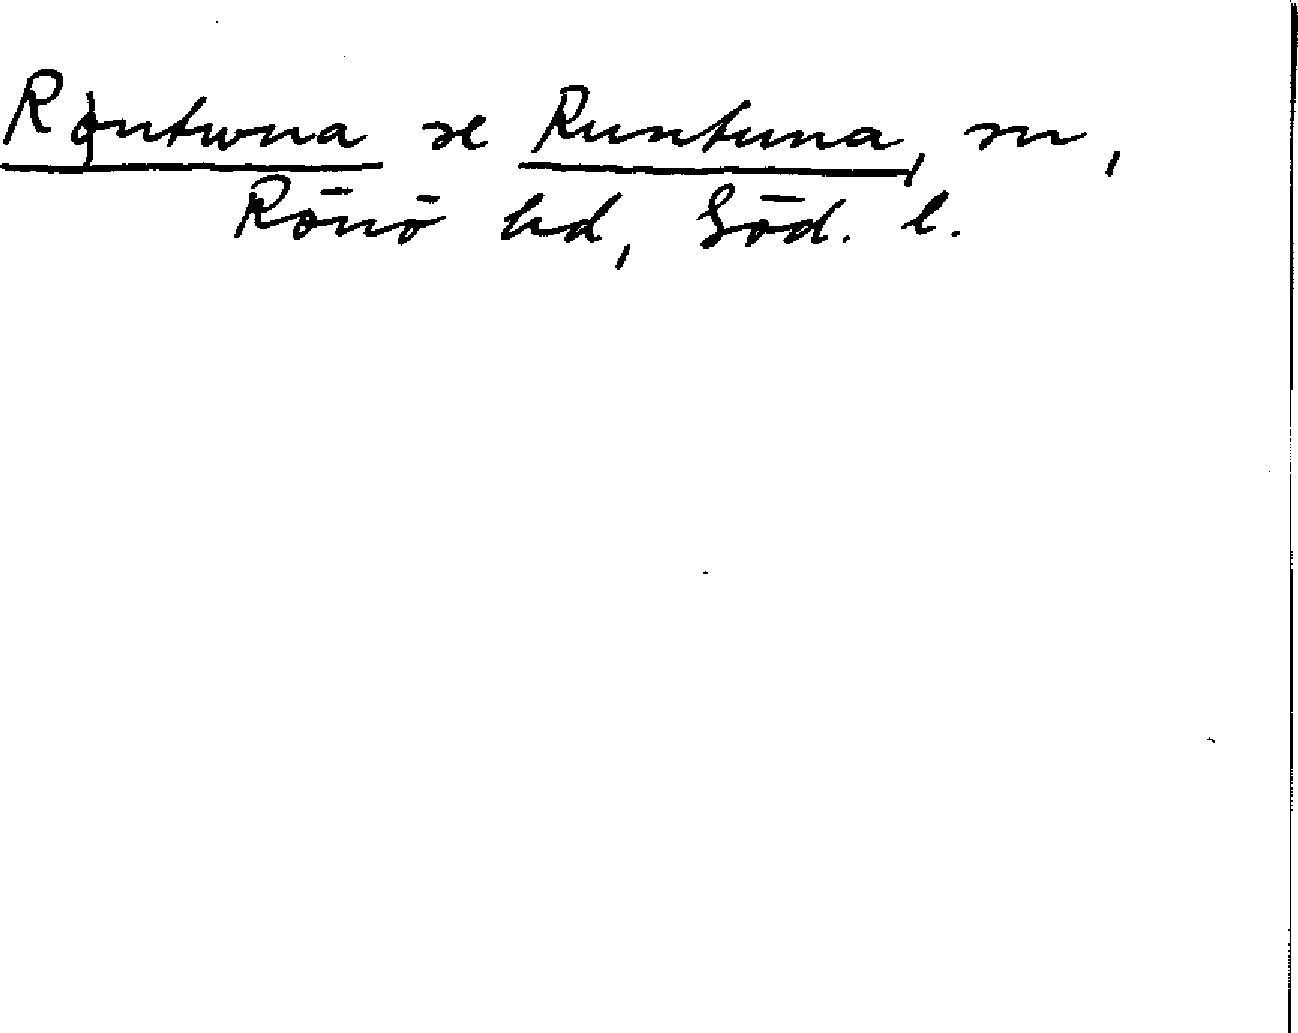 Røntwna se Runtuna, sn,
Rönö hd, Söd. l.